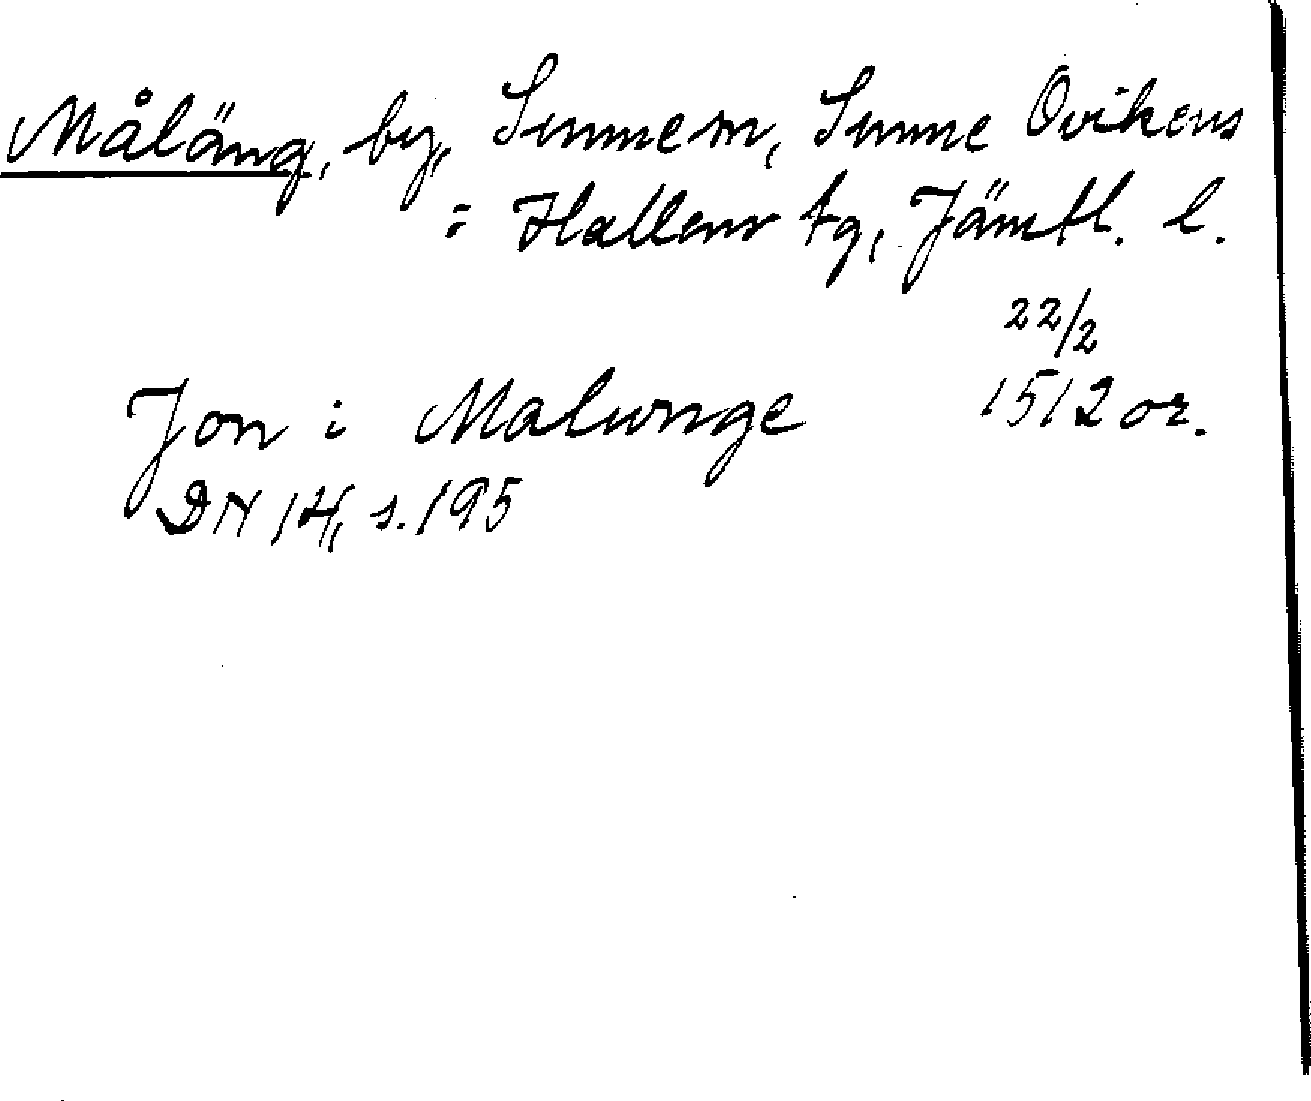 Måläng, by, Sunne sn, Sunne Ovikens
: Hallens tg, Jämtl. l.
22/2
Jon i Malunge 1512 or.
DN 14, s. 195